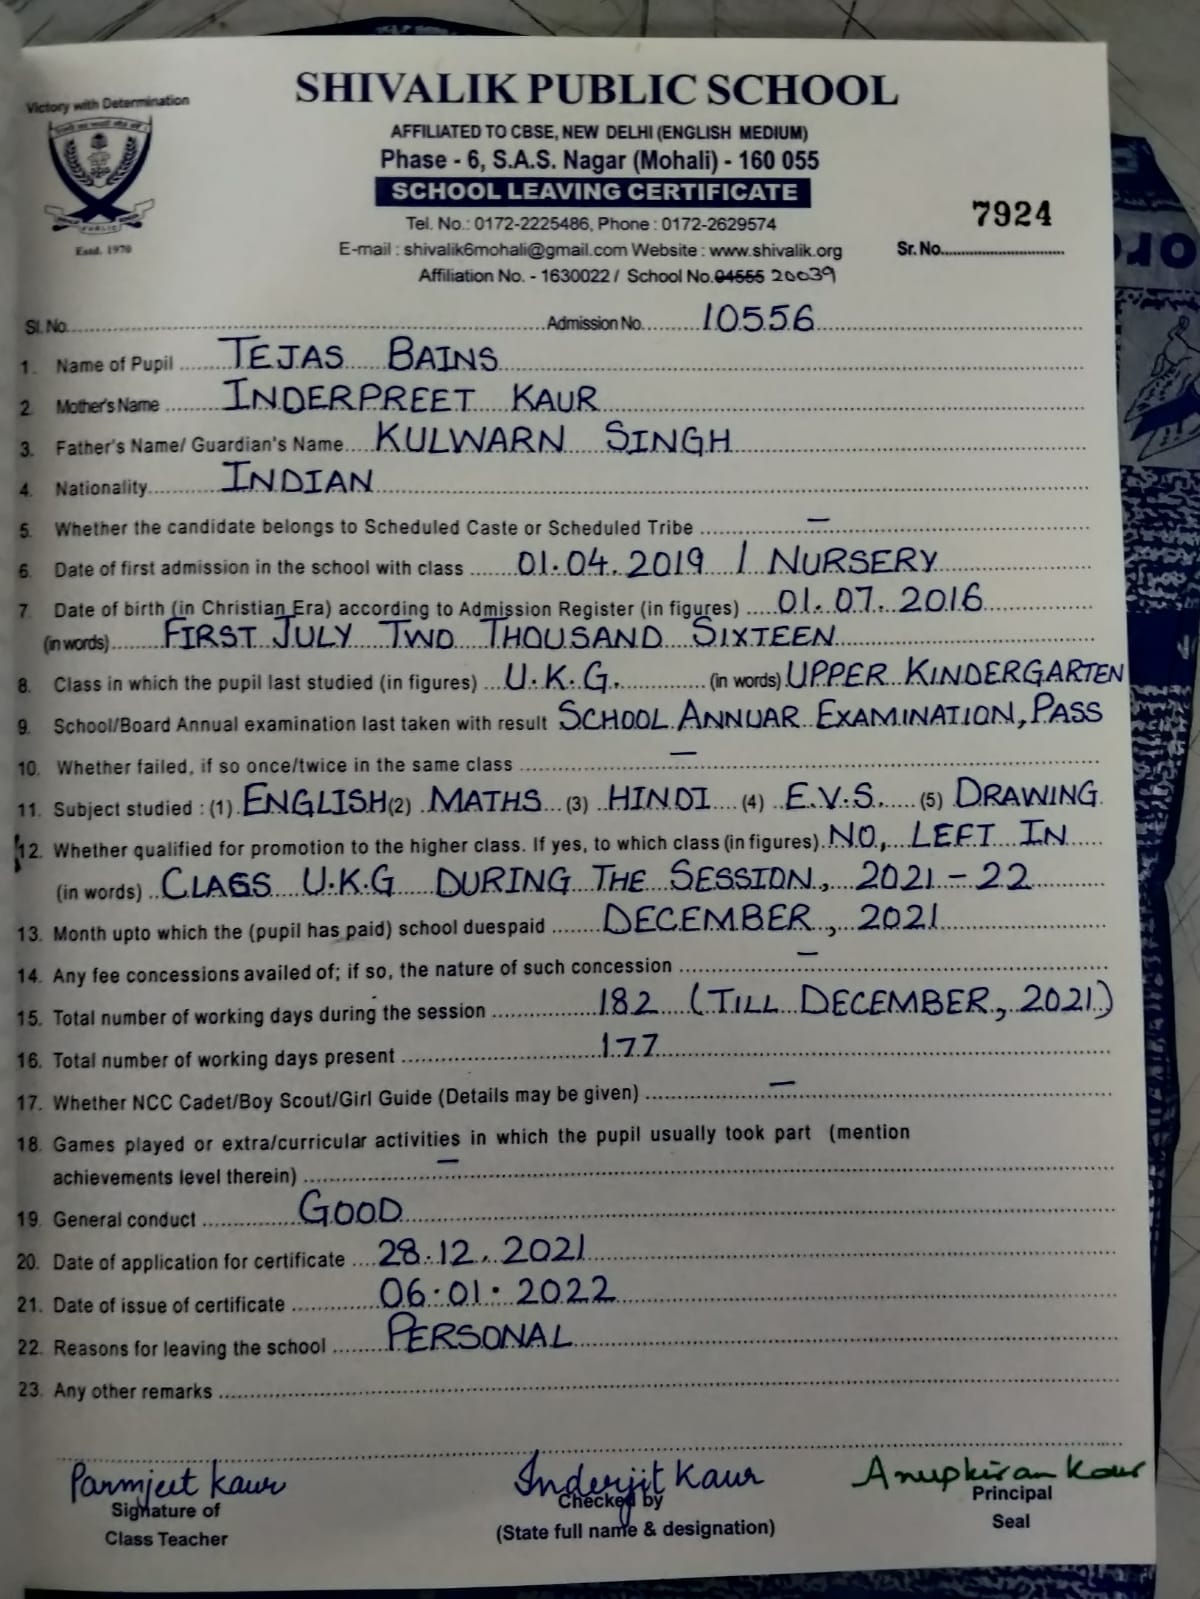 SHIVALIK PUBLIC SCHOOL
Victory with Determination
AFFILIATED TO CBSE, NEW DELHI (ENGLISH MEDIUM)
Phase - 6, S.A.S. Nagar (Mohali) - 160 055
SCHOOL LEAVING CERTIFICATE
Estd. 1970
Tel. No.: 0172-2225486, Phone : 0172-2629574
7924
E-mail : shivalik6mohali@gmail.com Website : www.shivalik.org
Sr. No.
Affiliation No. - 1630022 / School No. 04555 20039
Sl. No. Admission No. 10556
1. Name of Pupil TEJAS BAINS
2. Mother's Name INDERPREET KAUR
3. Father's Name/ Guardian's Name KULWARN SINGH
4. Nationality INDIAN
5. Whether the candidate belongs to Scheduled Caste or Scheduled Tribe —
6. Date of first admission in the school with class 01.04.2019 / NURSERY
7. Date of birth (in Christian Era) according to Admission Register (in figures) 01.07.2016
(in words) FIRST JULY TWO THOUSAND SIXTEEN
8. Class in which the pupil last studied (in figures) U.K.G. (in words) UPPER KINDERGARTEN
9. School/Board Annual examination last taken with result SCHOOL ANNUAR EXAMINATION, PASS
10. Whether failed, if so once/twice in the same class —
11. Subject studied : (1) ENGLISH (2) MATHS (3) HINDI (4) E.V.S. (5) DRAWING
12. Whether qualified for promotion to the higher class. If yes, to which class (in figures) NO, LEFT IN
(in words) CLASS U.K.G DURING THE SESSION, 2021-22
13. Month upto which the (pupil has paid) school duespaid DECEMBER, 2021
14. Any fee concessions availed of; if so, the nature of such concession —
15. Total number of working days during the session 182 (TILL DECEMBER, 2021)
16. Total number of working days present 177
17. Whether NCC Cadet/Boy Scout/Girl Guide (Details may be given) —
18. Games played or extra/curricular activities in which the pupil usually took part (mention
achievements level therein) —
19. General conduct GOOD
20. Date of application for certificate 28.12.2021
21. Date of issue of certificate 06.01.2022
22. Reasons for leaving the school PERSONAL
23. Any other remarks
Parmjeet Kaur Inderjit Kaur Anupkiran Kaur
Signature of Checked by Principal
Class Teacher (State full name & designation) Seal